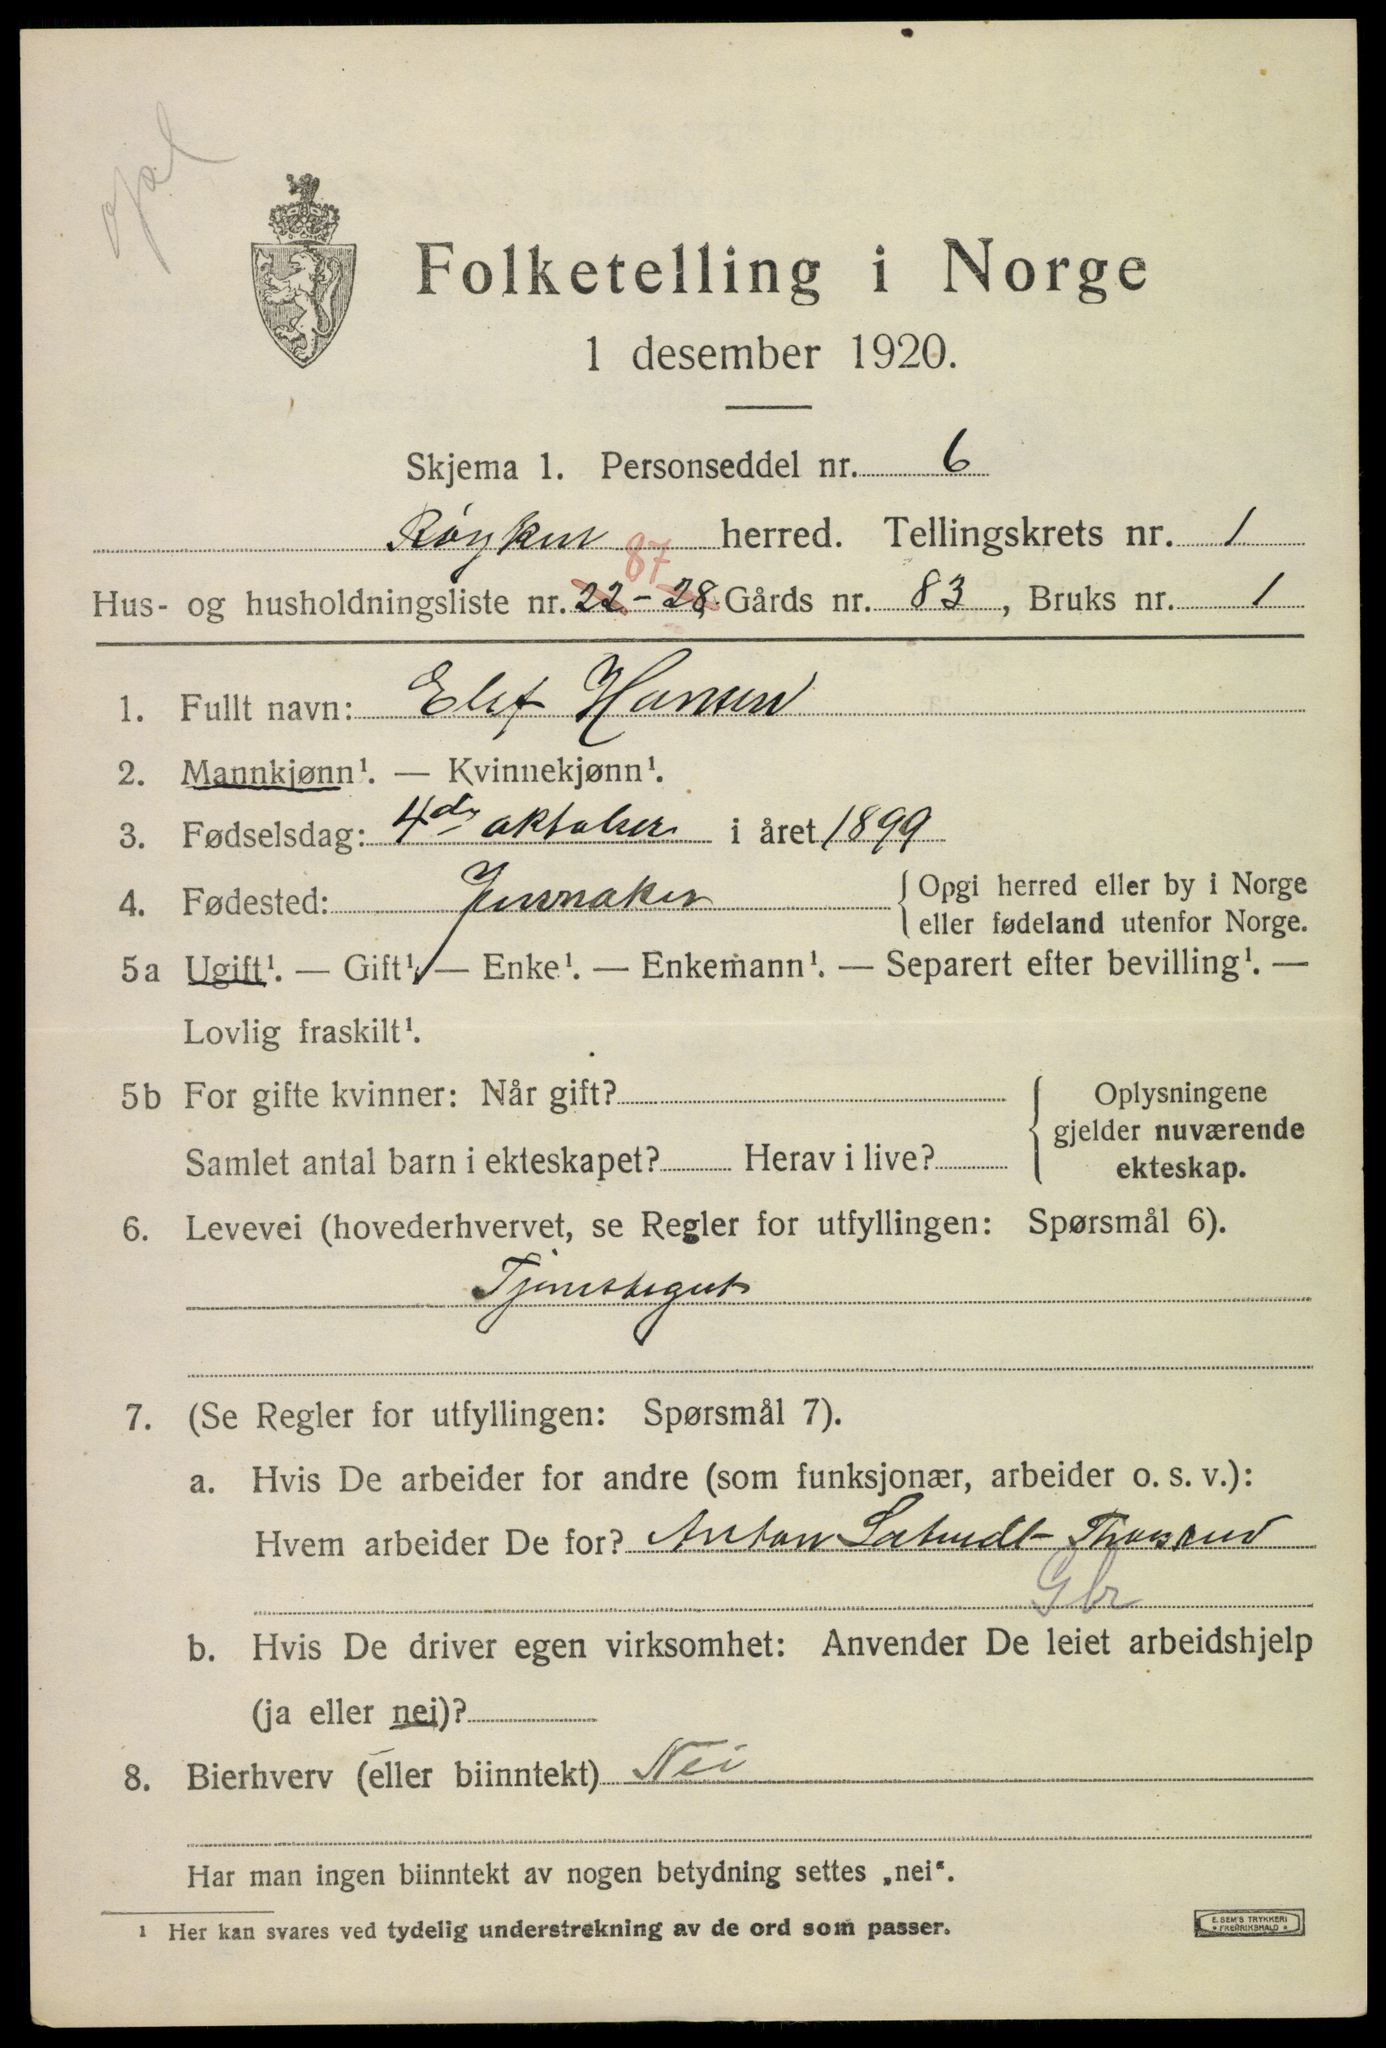 Folketelling i Norge
1 desember 1920.
Skjema 1. Personseddel nr. 6
Røyken herred. Tellingskrets nr. 1
87
Hus- og husholdningsliste nr. 22 - 28, Gårds nr. 83, Bruks nr. 1
1. Fullt navn: Elef Hansen
2. Mannkjønn¹. — Kvinnekjønn¹.
3. Fødselsdag: 4de oktober i året 1899
4. Fødested: Jevnaker { Opgi herred eller by i Norge
eller fødeland utenfor Norge.
5a Ugift¹. — Gift¹. — Enke¹. — Enkemann¹. — Separert efter bevilling¹. —
Lovlig fraskilt¹.
5b For gifte kvinner: Når gift? { Oplysningene
gjelder nuværende
Samlet antal barn i ekteskapet? Herav i live?
ekteskap.
6. Levevei (hovederhvervet, se Regler for utfyllingen: Spørsmål 6).
Tjenestegut
7. (Se Regler for utfyllingen: Spørsmål 7).
a. Hvis De arbeider for andre (som funksjonær, arbeider o. s. v.):
Hvem arbeider De for? Anton
Gbr
b. Hvis De driver egen virksomhet: Anvender De leiet arbeidshjelp
(ja eller nei)?
8. Bierhverv (eller biinntekt) Nei
Har man ingen biinntekt av nogen betydning settes „nei“.
¹ Her kan svares ved tydelig understrekning av de ord som passer.
E. SEM'S TRYKKERI
* FREDRIKSHALD *